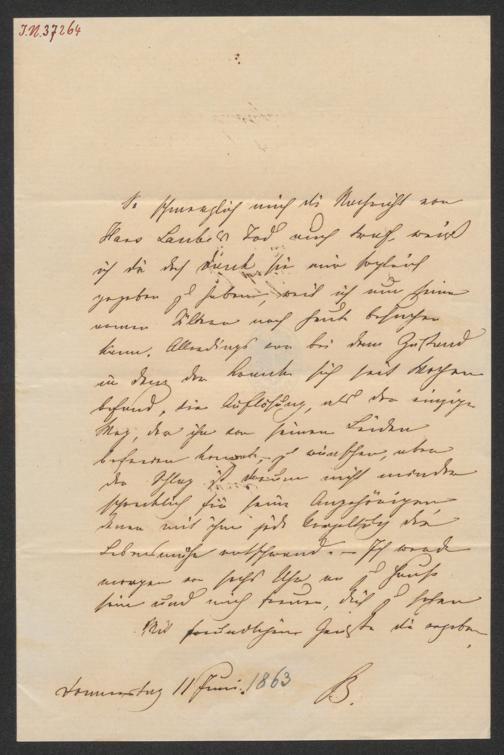 I.N. 37264
So schmerzlich mich die Nachricht von
Hans Laube's Tod auch traf, weiß
ich dir doch Dank sie mir sogleich
gegeben zu haben, weil ich nun seine
armen Ältern noch heute besuchen
kann. Allerdings war bei dem Zustand
in dem der Kranke sich seit Wochen
befand, die Auflösung, als der einzige
Weg, der ihn von seinen Leiden
befreien konnte zu wünschen, aber
der Schlag ist darum nicht minder
schrecklich für seine Angehörigen
denen mit ihm jede die
Lebensmühe entschwand. — Ich werde
morgen von sechs Uhr an zu Hause
sein und mich freuen, dich zu sehen
Mit freundlichem Gruße die ergeben
Donnerstag 11 Juni. 1863 B.